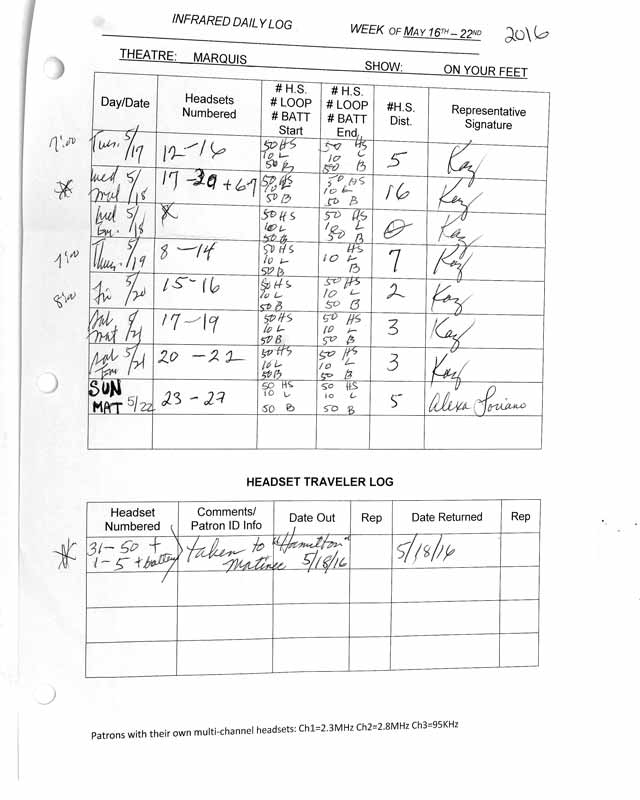 INFRARED DAILY LOG WEEK OF MAY 16TH – 22ND 2016
THEATRE: MARQUIS SHOW: ON YOUR FEET
Day/Date Headsets Numbered # H.S. # LOOP # BATT Start # H.S. # LOOP # BATT End #H.S. Dist. Representative Signature
7:00 Tues. 5/17 12-16 50 HS 10 L 50 B 50 HS 10 L 50 B 5 Kay
Wed mat 5/18 17-30 + 67 50 HS 10 L 50 B 50 HS 10 L 50 B 16 Kay
Wed Ev. 5/18 X 50 HS 10 L 50 B 50 HS 10 L 50 B 0 Kay
7:00 Thur. 5/19 8-14 50 HS 10 L 50 B HS 10 L B 7 Kay
8:00 Fri 5/20 15-16 50 HS 10 L 50 B 50 HS 10 L 50 B 2 Kay
Sat mat 5/21 17-19 50 HS 10 L 50 B 50 HS 10 L 50 B 3 Kay
Sat Ev 5/21 20-22 50 HS 10 L 50 B 50 HS 10 L 50 B 3 Kay
SUN MAT 5/22 23-27 50 HS 10 L 50 B 50 HS 10 L 50 B 5 Alexa Soriano
HEADSET TRAVELER LOG
Headset Numbered Comments/ Patron ID Info Date Out Rep Date Returned Rep
31-50 + 1-5 + battery taken to "Hamilton" Matinee 5/18/16 5/18/16
Patrons with their own multi-channel headsets: Ch1=2.3MHz Ch2=2.8MHz Ch3=95KHz